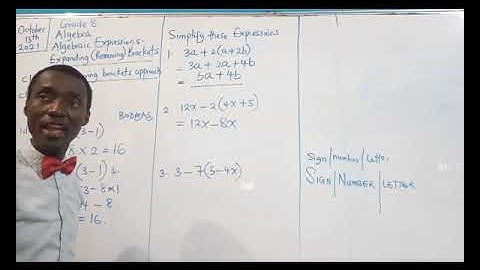 October
13th
2021
Grade 8
Algebra
Algebraic Expressions
Expanding (Removing) Brackets
brackets approach
BODMAS
3-1)
8 x 2 = 16
(3-1)
4 - 8
= 16.
Simplify these Expressions
1. 3a + 2(a+2b)
= 3a + 2a + 4b
= 5a + 4b
2. 12x - 2(4x+5)
= 12x - 8x
3. 3 - 7(5-4x)
Sign/number/letter
SIGN/NUMBER/LETTER